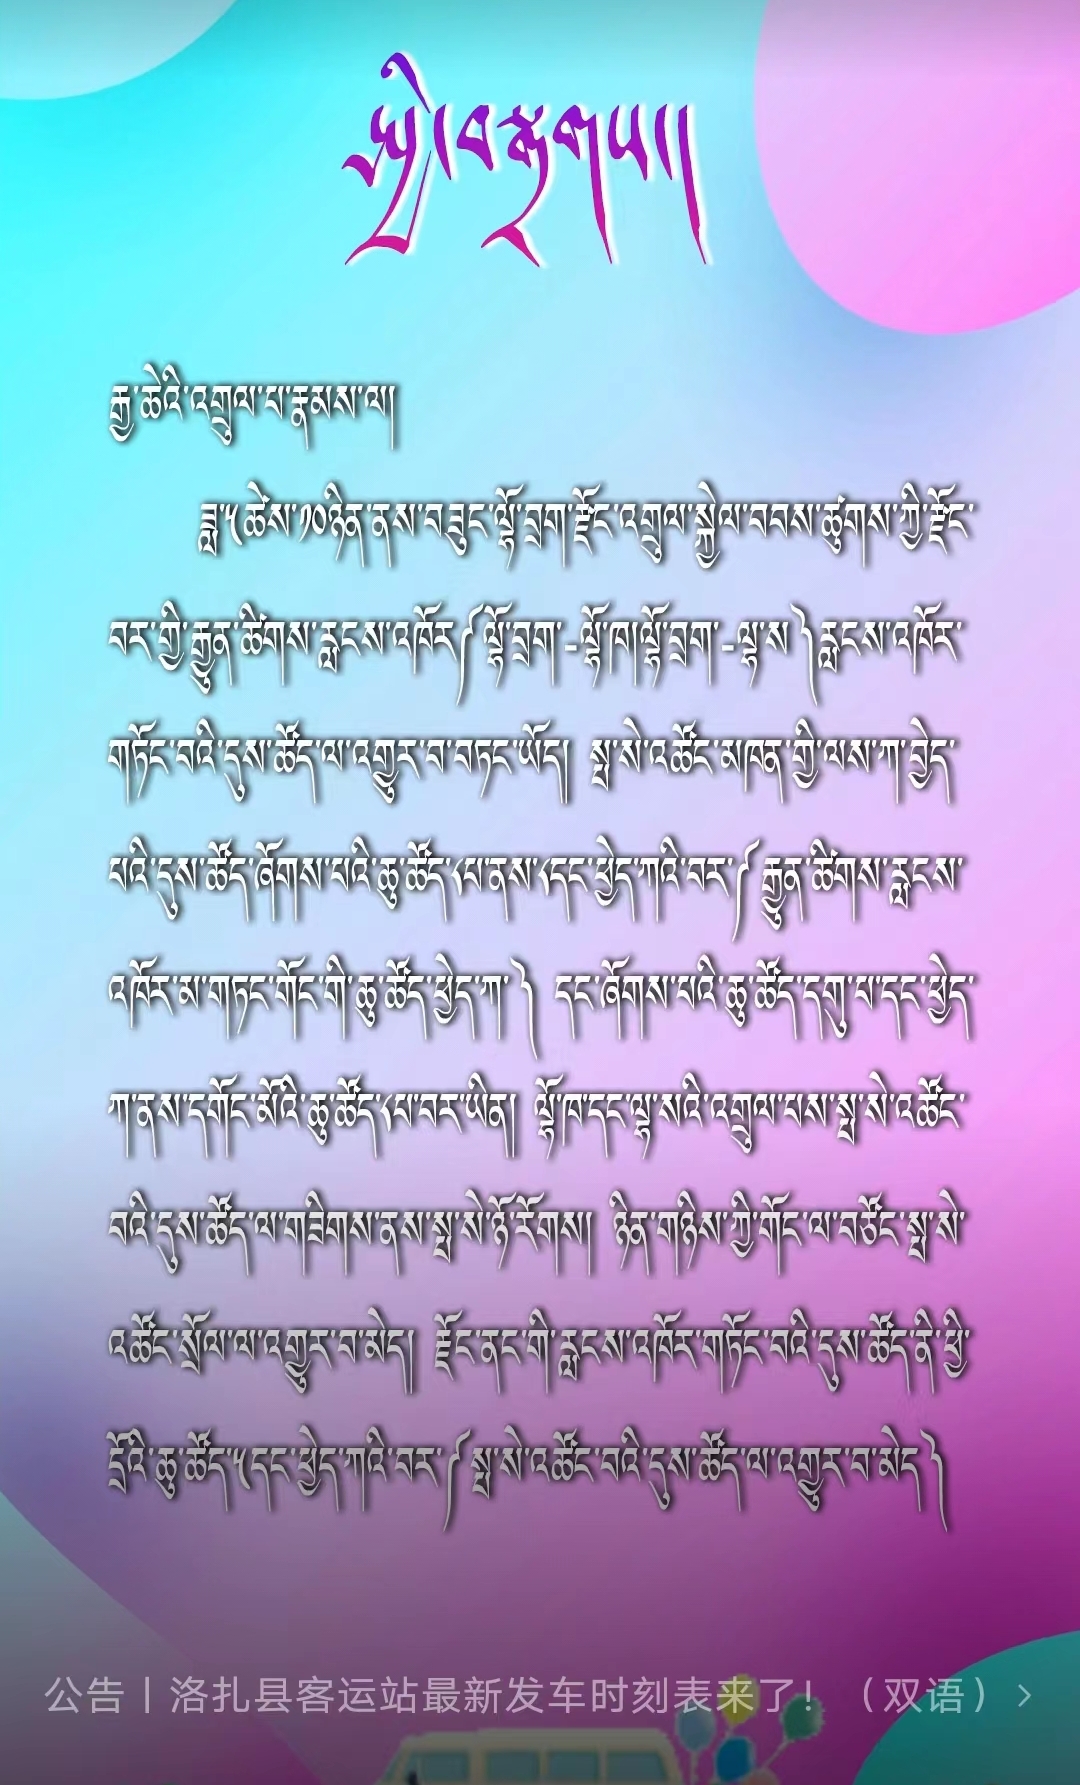 སྤྱི་བརྡ་གཡ།།
རྒྱ་ཆེའི་འགྲུལ་པ་རྣམས་ལ།།
ཟླ་༥ཚེས་༡༠ཉིན་ནས་བཟུང་ལྷོ་བྲག་རྫོང་འགྲུལ་སྐྱེལ་བབས་ཚུགས་ཀྱི་རྫོང་
བར་གྱི་རྒྱུན་ཚགས་རླངས་འཁོར༼ལྷོ་བྲག་-ལྷོ་ཁ།ལྷོ་བྲག་-ལྷ་ས༽རླངས་འཁོར་
གཏོང་བའི་དུས་ཚོད་ལ་འགྱུར་བ་བཏང་ཡོད། སྤ་སེ་འཚོང་མཁན་གྱི་ལས་ཀ་བྱེད་
པའི་དུས་ཚོད་ཞོགས་པའི་ཆུ་ཚོད་༨པ་ནས་༨དང་ཕྱེད་ཀའི་བར་༼རྒྱུན་ཚགས་རླངས་
འཁོར་མ་གཏང་གོང་གི་ཆུ་ཚོད་ཕྱེད་ཀ་༽ དང་ཞོགས་པའི་ཆུ་ཚོད་དགུ་པ་དང་ཕྱེད་
ཀ་ནས་དགོང་མོའི་ཆུ་ཚོད་༨པ་བར་ཡིན། ལྷོ་ཁ་དང་ལྷ་སའི་འགྲུལ་པས་སྤ་སེ་འཚོང་
བའི་དུས་ཚོད་ལ་གཟིགས་ནས་སྤ་སེ་ཉོ་རོགས། ཉིན་གཉིས་ཀྱི་གོང་ལ་བཙོང་སྤ་སེ་
འཚོང་སྲོལ་ལ་འགྱུར་བ་མེད། རྫོང་ནང་གི་རླངས་འཁོར་གཏོང་བའི་དུས་ཚོད་ནི་ཕྱི་
དྲོའི་ཆུ་ཚོད་༥དང་ཕྱེད་ཀའི་བར་༼སྤ་སེ་འཚོང་བའི་དུས་ཚོད་ལ་འགྱུར་བ་མེད༽
公告丨洛扎县客运站最新发车时刻表来了!（双语）